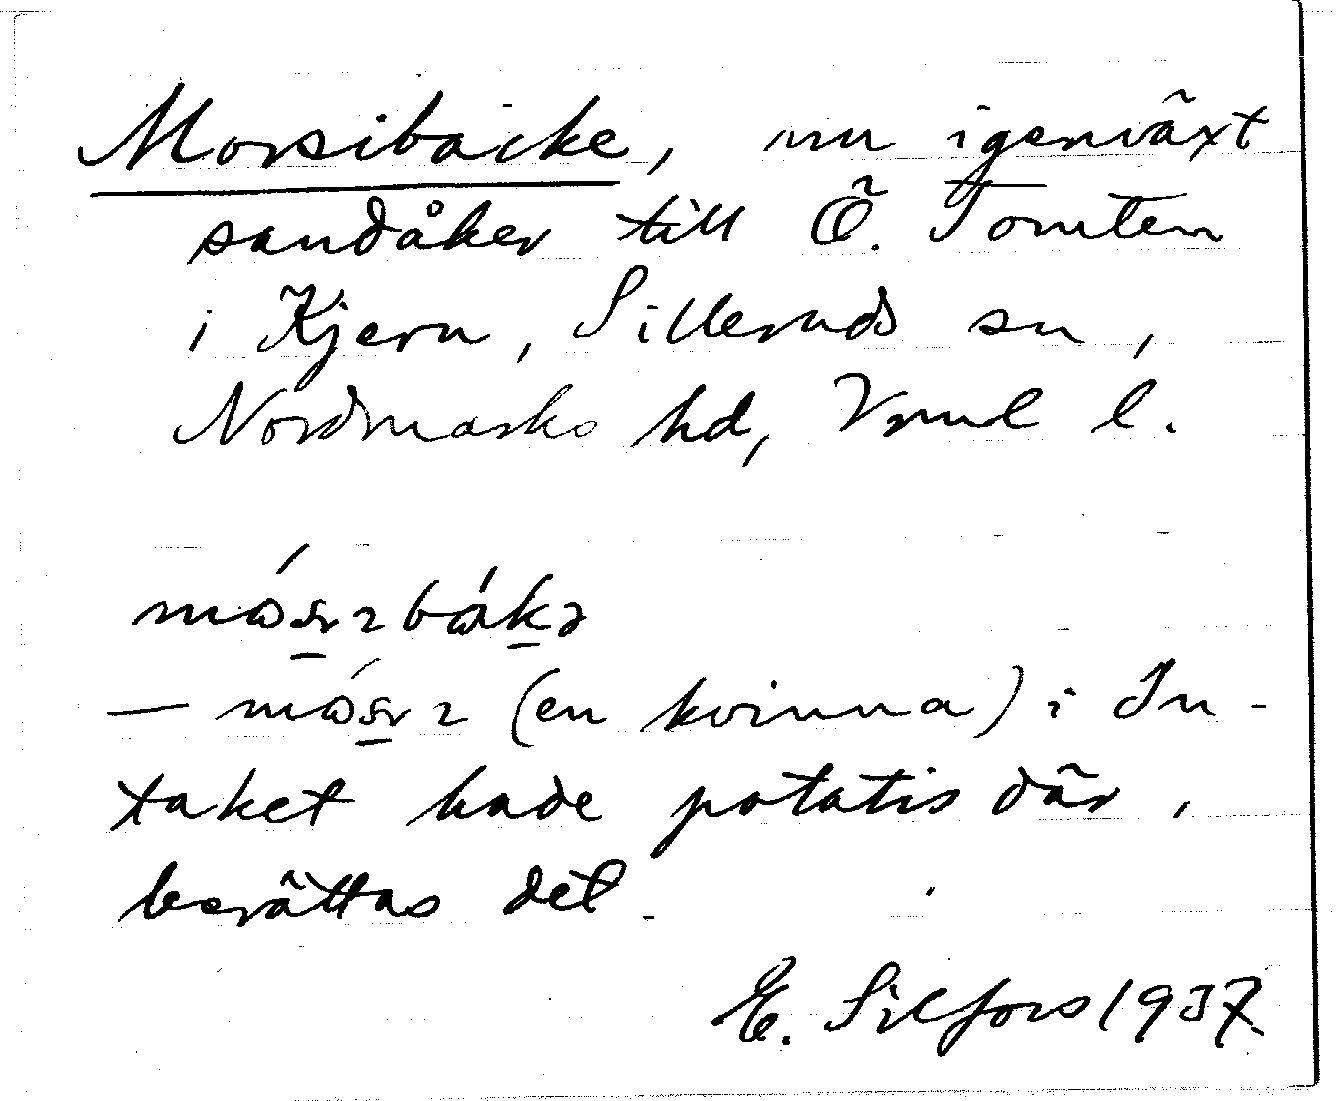 Morsibacke, nu igenväxt
sandåker till Ö. Tomten
i Kjern, Silleruds sn,
Nordmarks hd, Vrml l.
— (en kvinna) i In-
taket hade potatis där,
berättas det.
E. Silfors 1937